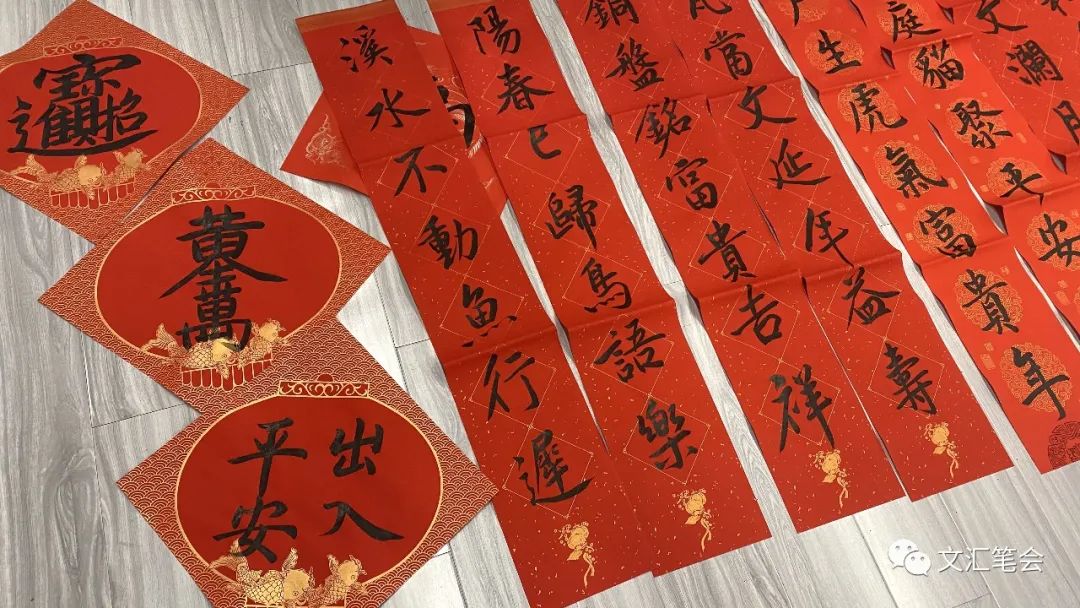 招財進寶
黄金萬兩
出入
平安
溪水不動魚行遲
陽春已歸鳥語樂
銅盤銘富貴吉祥
瓦當文延年益壽
生虎氣富貴年
庭貓聚平安
文瀾月
文汇笔会